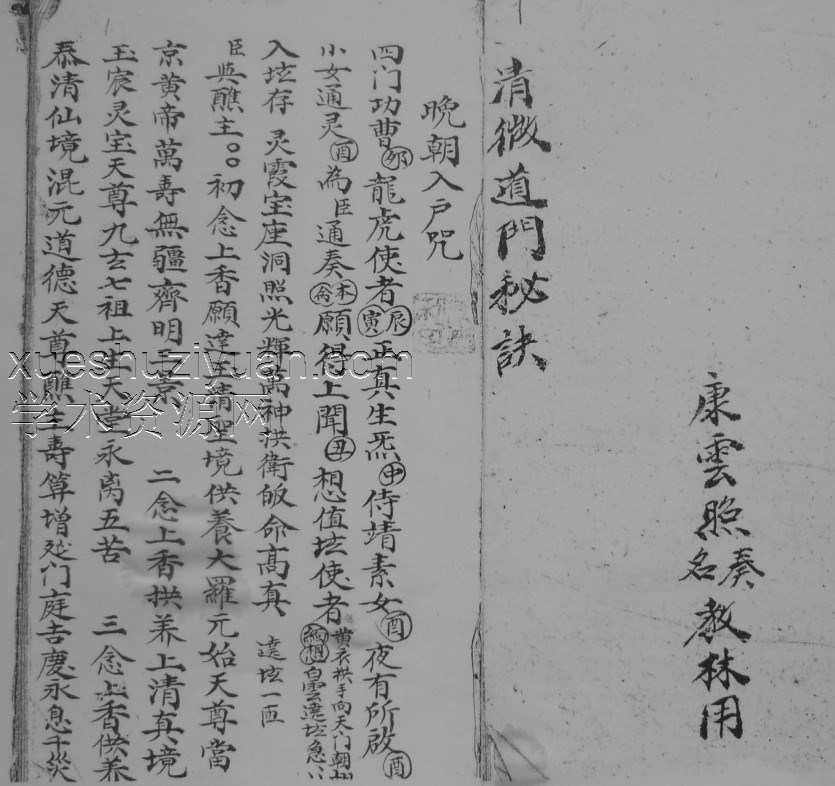 康雲照
奏名
教林用
清微道門秘訣
晚朝入戶咒
四门功曹卯龍虎使者辰寅正真生炁申侍靖素女酉夜有所啟酉
小女通灵酉為臣通奏本命願得上聞丑想值坛使者黄衣拱手向天门朝
白雲遶坛急
入坛存灵霞宝座洞照光輝萬神拱衛皈命高真遶坛一匝
臣與醮主〇〇初念上香願達玉清聖境供養大羅元始天尊當
京黄帝萬壽無疆齊明三景 二念上香拱养上清真境
玉宸灵宝天尊九玄七祖上生天堂永离五苦 三念上香供养
泰清仙境混元道德天尊醮主壽算增延门庭吉慶永息千災
xueshuziyuan.com
学术资源网